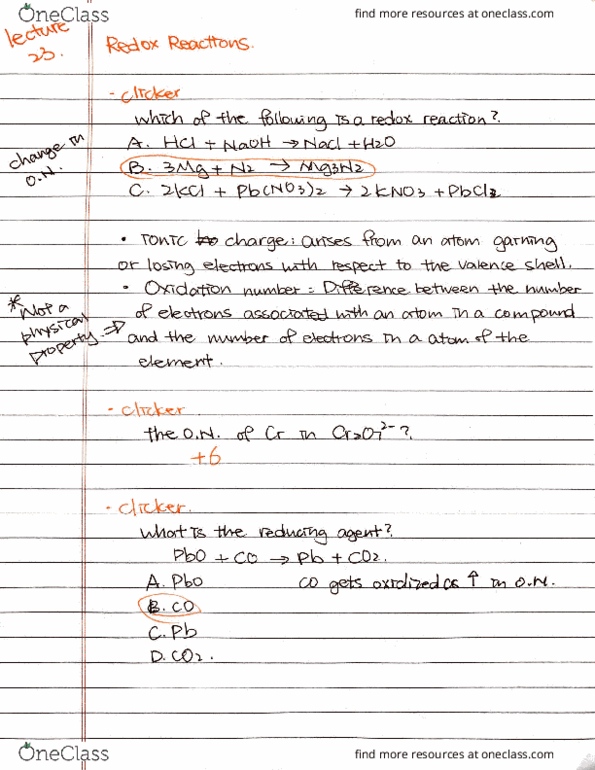 OneClass
find more resources at oneclass.com
lecture
23.
Redox Reactions.
- clicker
which of the following is a redox reaction?
A. HCl + NaOH → NaCl + H2O
change in
O.N.
B. 3Mg + N2 → Mg3N2
C. 2KCl + Pb(NO3)2 → 2KNO3 + PbCl2
• Ionic charge: arises from an atom gaining
or losing electrons with respect to the valence shell.
• Oxidation number = Difference between the number
* Not a
physical
property. ⇒
of electrons associated with an atom in a compound
and the number of electrons in a atom of the
element.
- clicker
the O.N. of Cr in Cr2O7 2- ?
+6
- clicker.
What is the reducing agent?
PbO + CO → Pb + CO2.
A. PbO
CO gets oxidized as ↑ in O.N.
B. CO
C. Pb
D. CO2.
OneClass
find more resources at oneclass.com